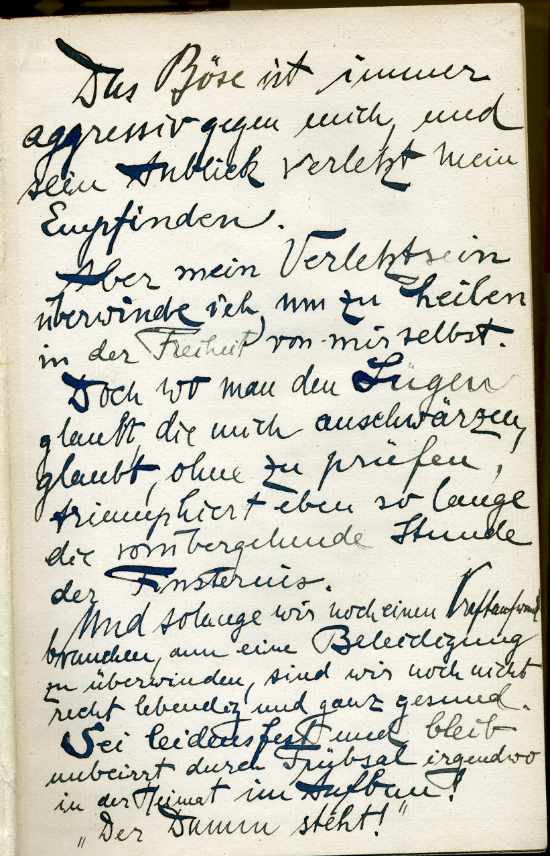 Das Böse ist immer
aggressiv gegen mich, und
sein Anblick verletzt mein
Empfinden.
Aber mein Verletztsein
überwinde ich, um zu heilen
in der Freiheit von mir selbst.
Doch wo man den Lügen
glaubt, die mich anschwärzen,
glaubt, ohne zu prüfen,
triumphiert eben so lange
die vorübergehende Stunde
der Finsternis.
Und solange wir noch einen Kraftaufwand
brauchen, um eine Beleidigung
zu überwinden, sind wir noch nicht
recht lebendig und ganz gesund.
Sei leidensfest und bleib
unbeirrt durch Trübsal irgendwo
in der Heimat im Aufbau!
„Der Damm steht!"